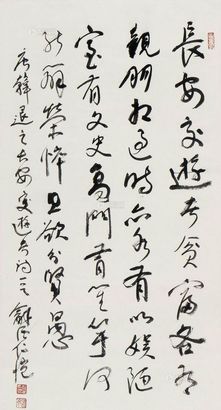 長安交遊者貧富各有
親朋相過時亦各有以娛陋
室有文史高門有笙竽何
能辨榮悴且欲分賢愚
唐韓退之長安交遊者詩一首